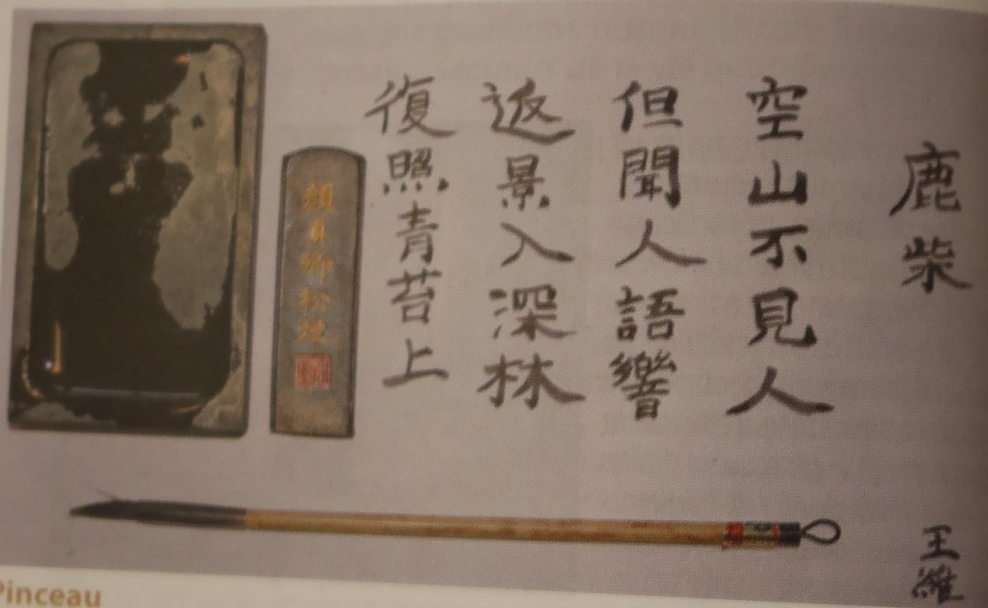 鹿柴
空山不見人
但聞人語響
返景入深林
復照青苔上
王維
顏真卿松煙
Pinceau